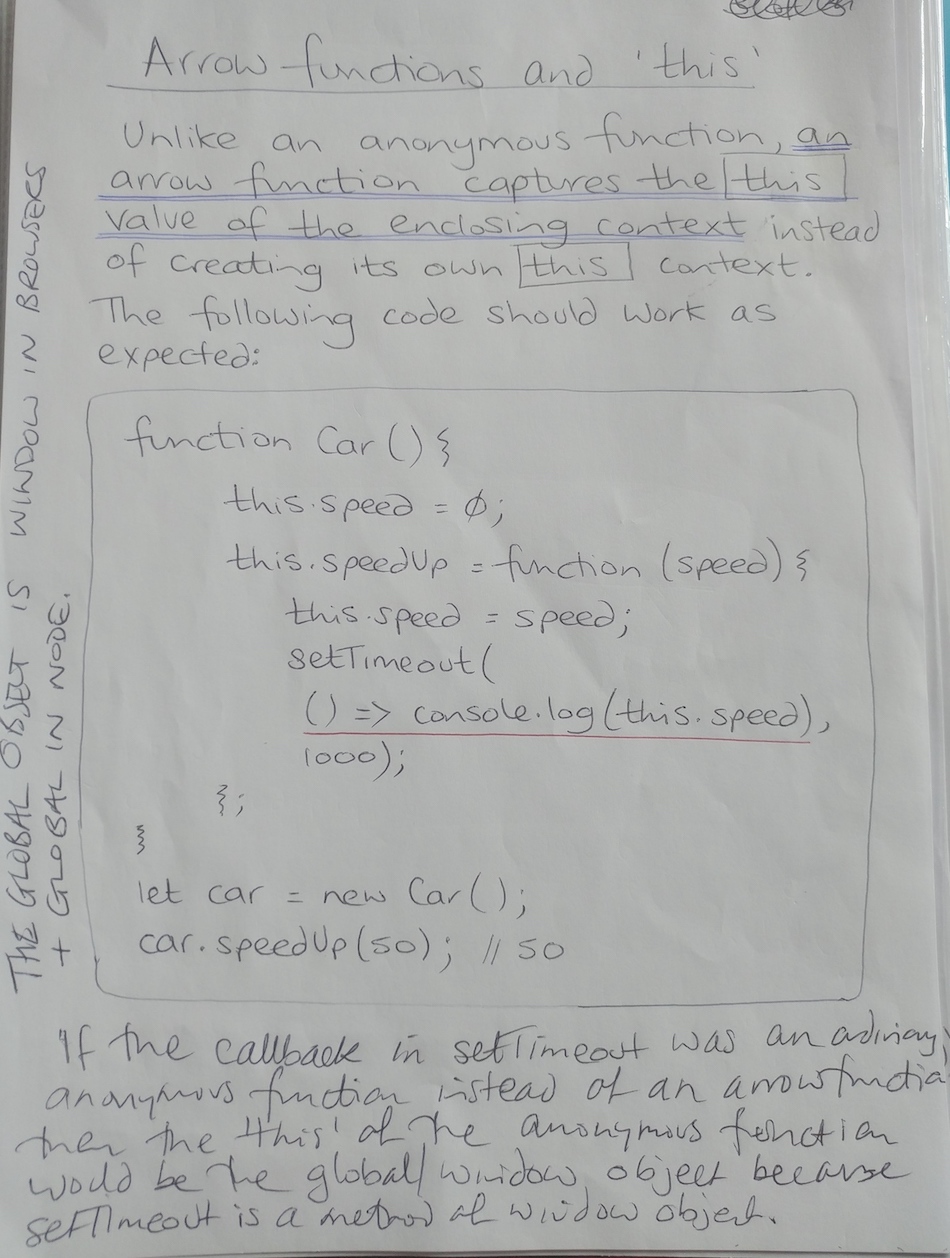 Arrow functions and 'this'
Unlike an anonymous function, an
arrow function captures the this
value of the enclosing context instead
of creating its own this context.
The following code should work as
expected:
function Car () {
this.speed = 0;
this.speedUp = function (speed) {
this.speed = speed;
setTimeout(
() => console.log(this.speed),
1000);
};
}
let car = new Car();
car.speedUp(50); // 50
If the callback in setTimeout was an ordinary
anonymous function instead of an arrow functio
then the 'this' of the anonymous function
would be the global/window object because
setTimeout is a method of window object.
THE GLOBAL OBJECT IS WINDOW IN BROWSERS
+ GLOBAL IN NODE.